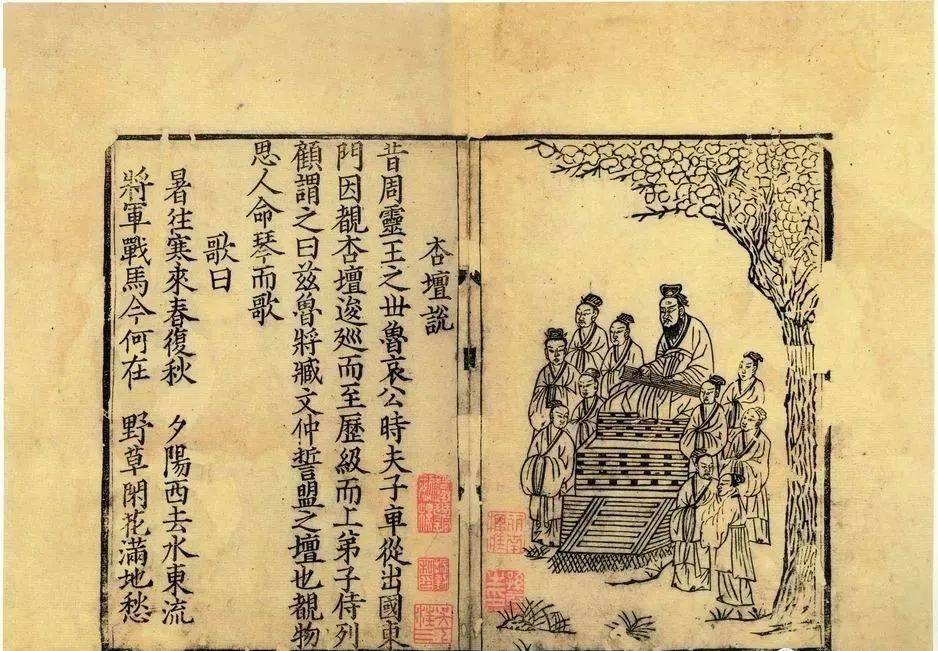 杏壇説
昔周靈王之世魯哀公時夫子車從出國東
門因覩杏壇逡巡而至歷級而上弟子侍列
顧謂之曰茲魯將臧文仲誓盟之壇也覩物
思人命琴而歌
歌曰
暑往寒來春復秋 夕陽西去水東流
將軍戰馬今何在 野草閑花滿地愁